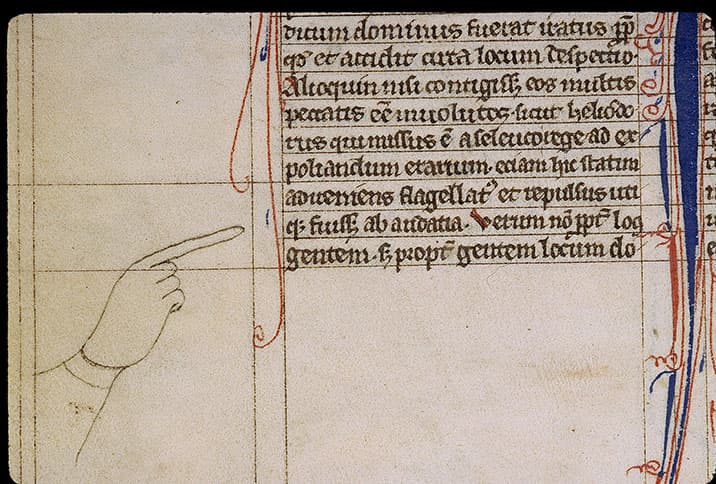 dicum dominus fuerat iratus ꝓp̄
qđ et accidit circa locum despectio·
Alioquin nisi contigiss; eos multis
peccatis eē inuolutos· sicut heliodo
rus qui missus ē a seleuco rege ad ex
poliandum erarium· eciam hic statim
adueniens flagellat᾽ et repulsus uti
q; fuiss; ab audatia· Verum nō ꝓpt᾽ loc̄
gentem· s; propt᾽ gentem locum do